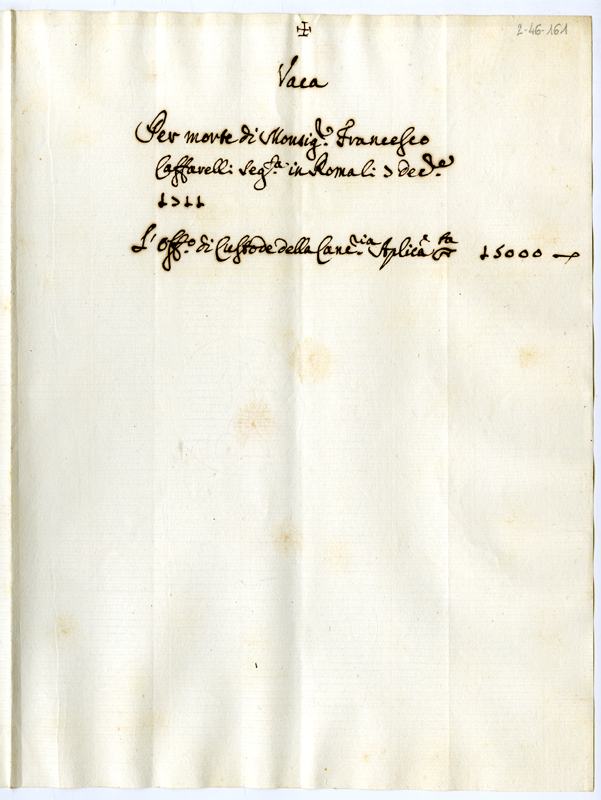 ✠
2-46-161
Vaca
Per morte di Monsig.r Francesco
Caffarelli seg.ta in Roma li 3 dec.re
L'Off.o di Custode della Canc.ria Aplicā
15000